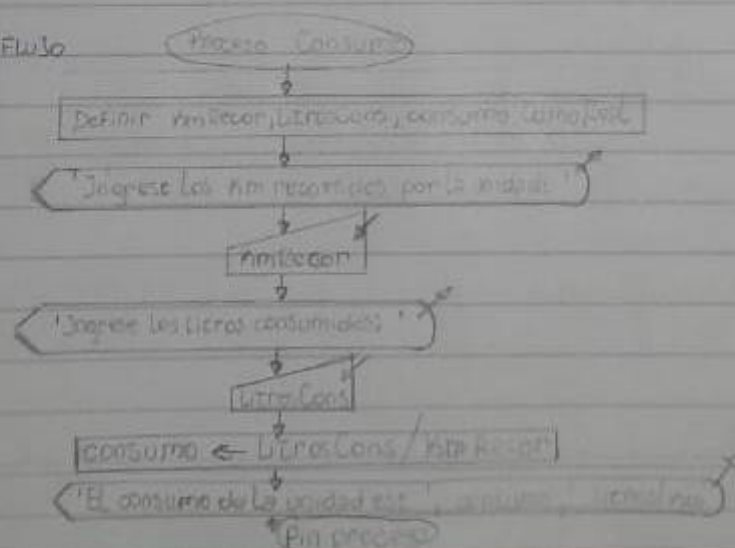 Flujo
Proceso Consumo
Definir KmRecor, LitrosCons, consumo Como Real
'Ingrese Los Km recorridos por la unidad: '
KmRecor
'Ingrese Los Litros consumidos: '
LitrosCons
consumo ← LitrosCons / KmRecor
'El consumo de La unidad es: ', consumo, '
Fin proceso